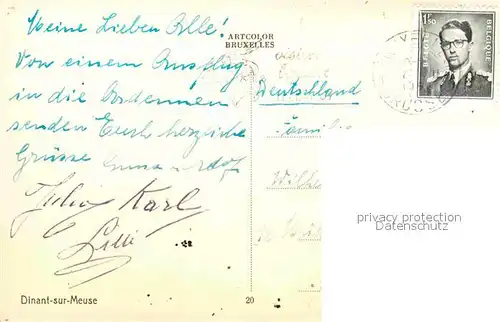 Meine Lieben Alle!
Von einem Ausflug
in die Ardennen
senden Euch herzliche
Grüsse
Julia Karl
Lilli
ARTCOLOR
BRUXELLES
Deutschland
Familie
1F50
BELGIE
BELGIQUE
privacy protection
Datenschutz
Dinant-sur-Meuse
20